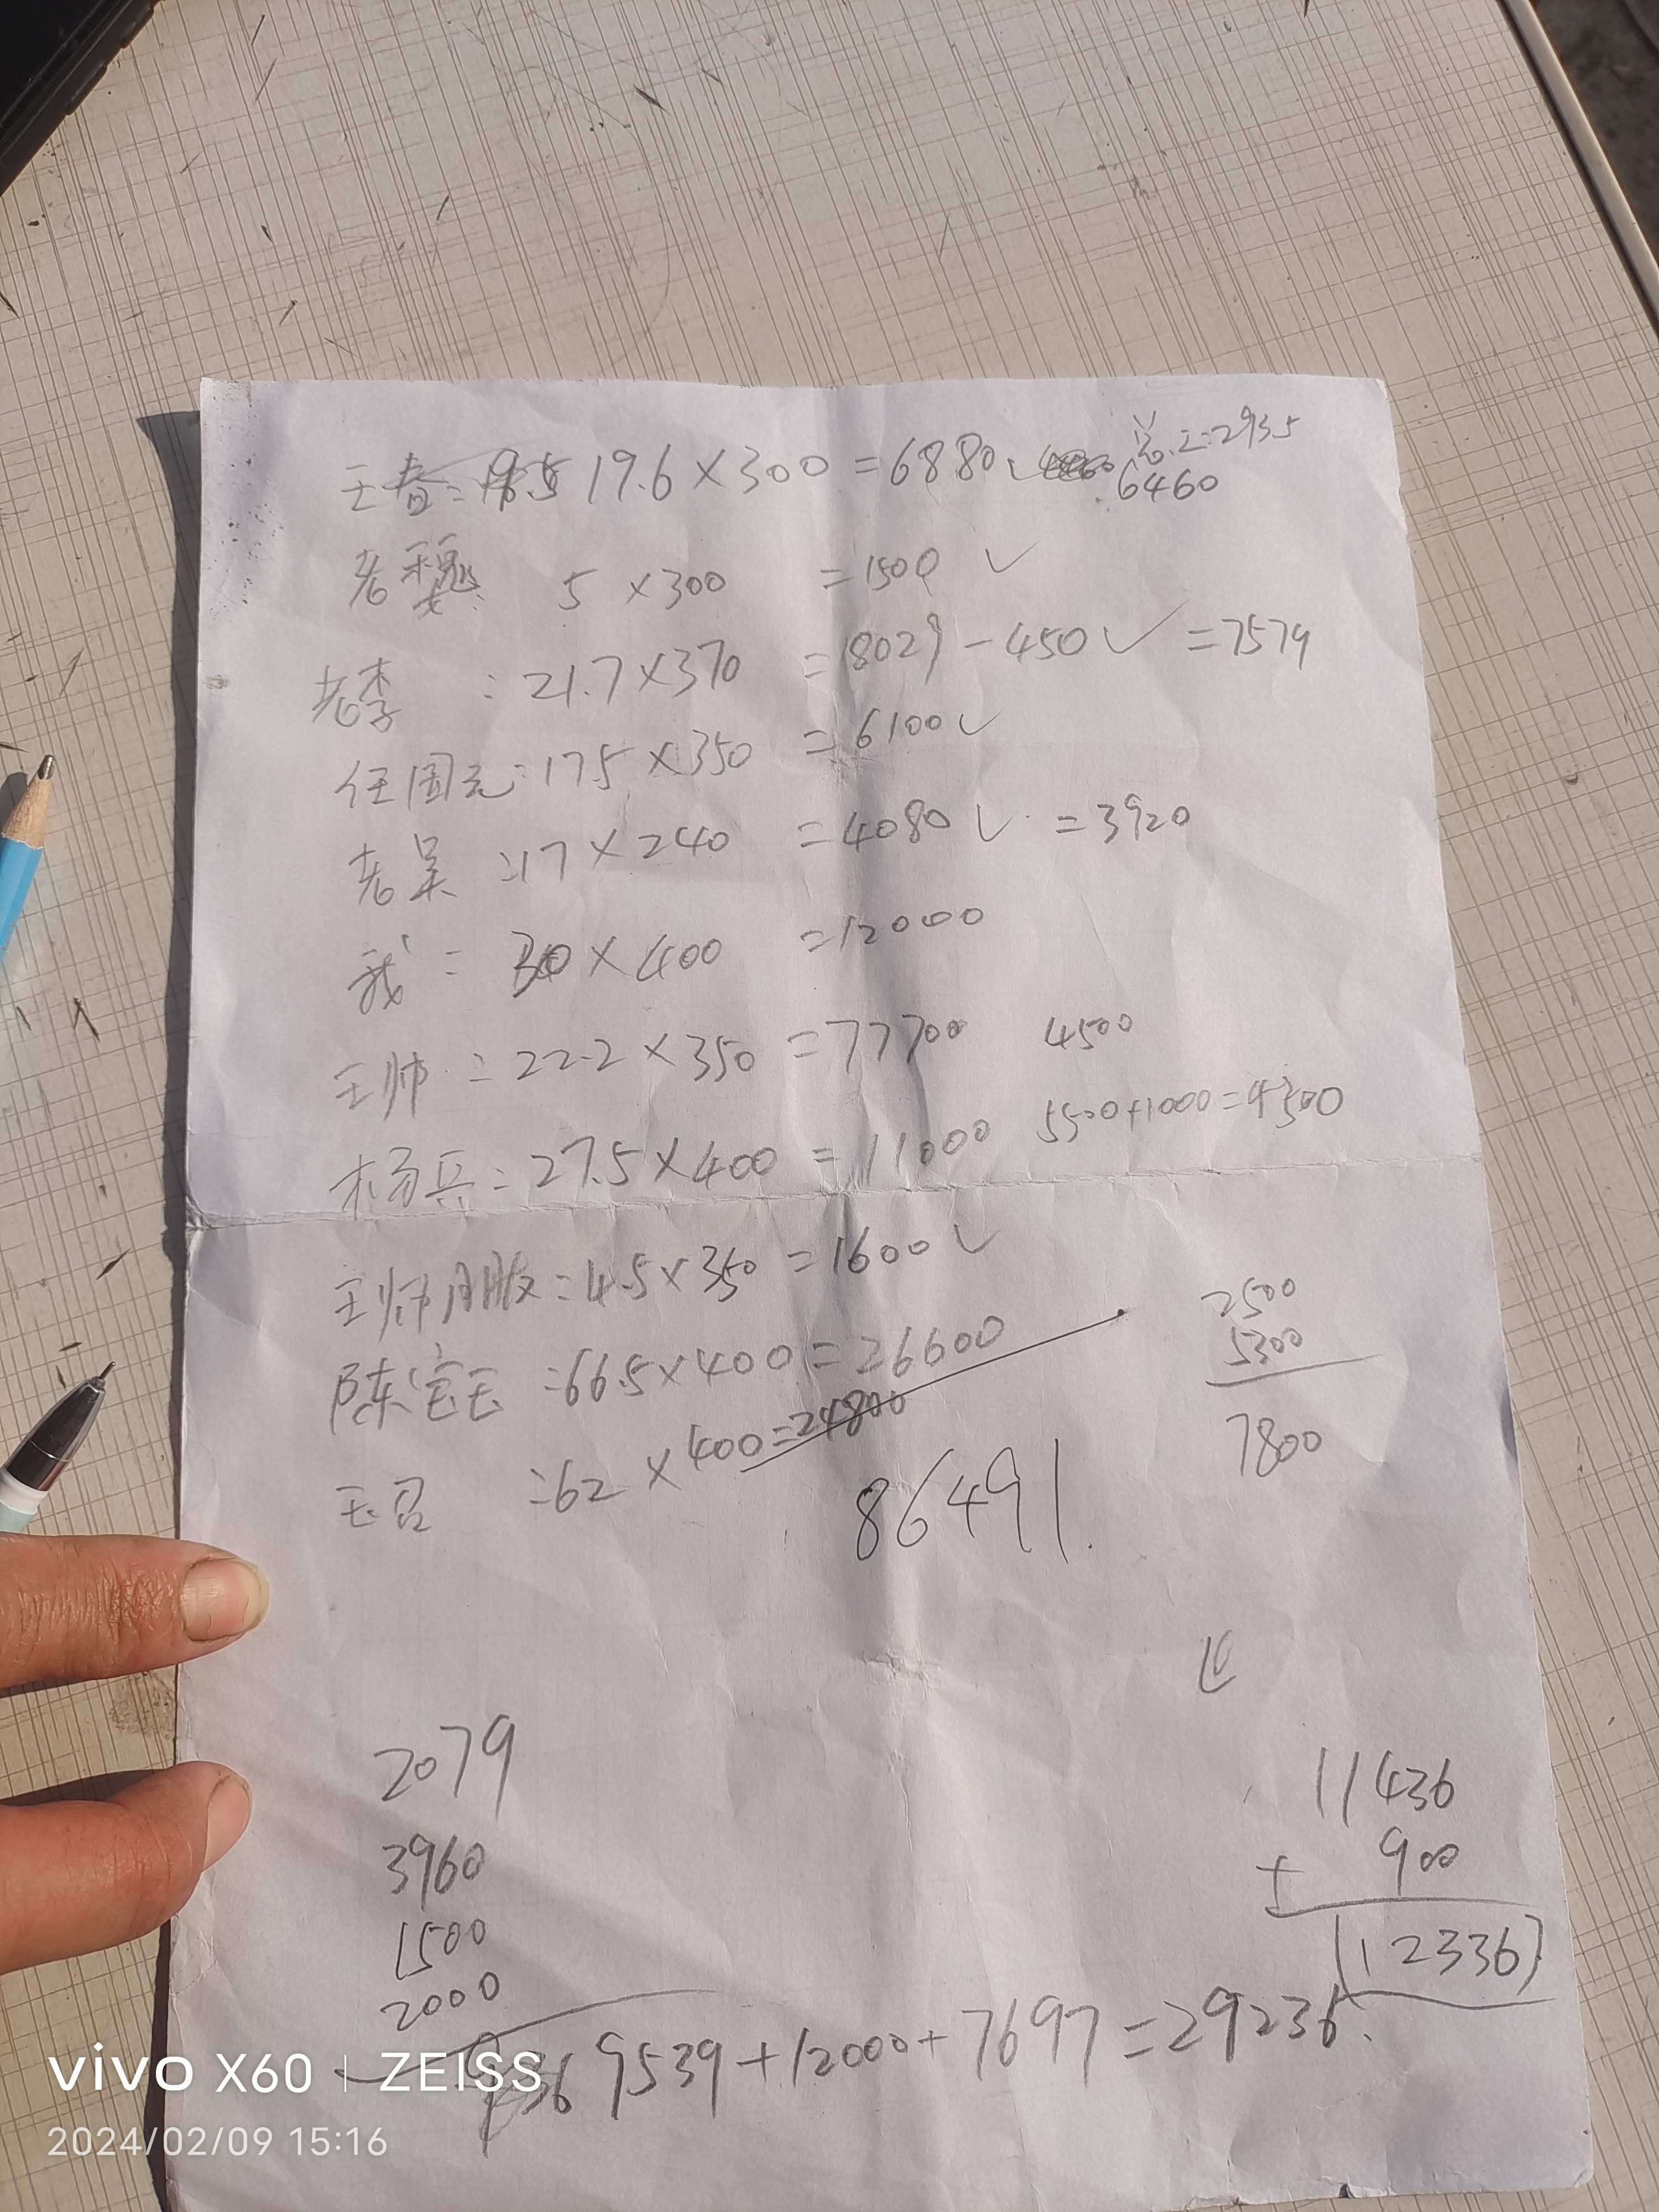 王春: 19.6×300 =6880 总工:2935
6460
老魏: 5 ×300 =1500 ✓
老李 : 21.7×370 =8029 -450 ✓ =7579
任国元: 17.5×350 =6100 ✓
老吴 :17×240 =4080 ✓ =3920
我: 30×400 =12000
王帅 : 22.2×350 =77700 4500
杨兵: 27.5×400 =11000 5500+1000=4500
王帅朋友: 4.5×350 =1600 ✓
陈宝玉 :66.5×400=26600
王召 :62×400=24800
2500
5300
7800
86491.
2079
3960
1500
2000
11436
+ 900
12336
9539+12000+7697=29236.
vivo X60 | ZEISS
2024/02/09 15:16